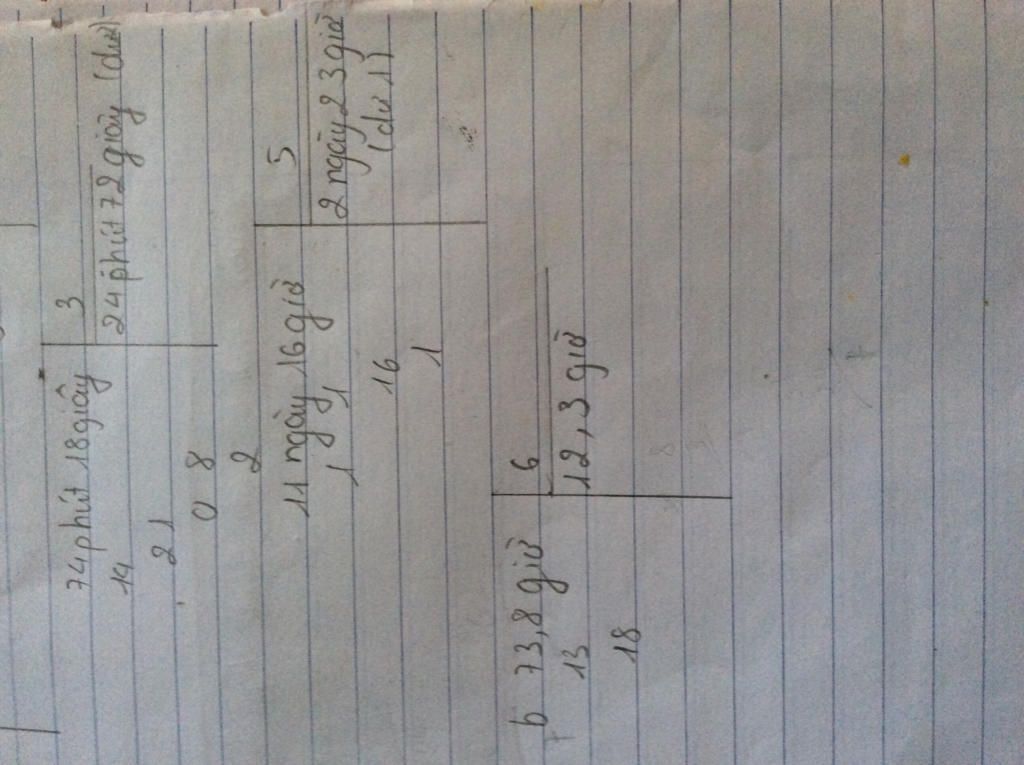 74 phút 18 giây 3
14 24 phút 72 giây (dư)
21
0 8
2
11 ngày 16 giờ 5
1 1 2 ngày 23 giờ
16 (dư 1)
1
b 73,8 giờ 6
13 12,3 giờ
18